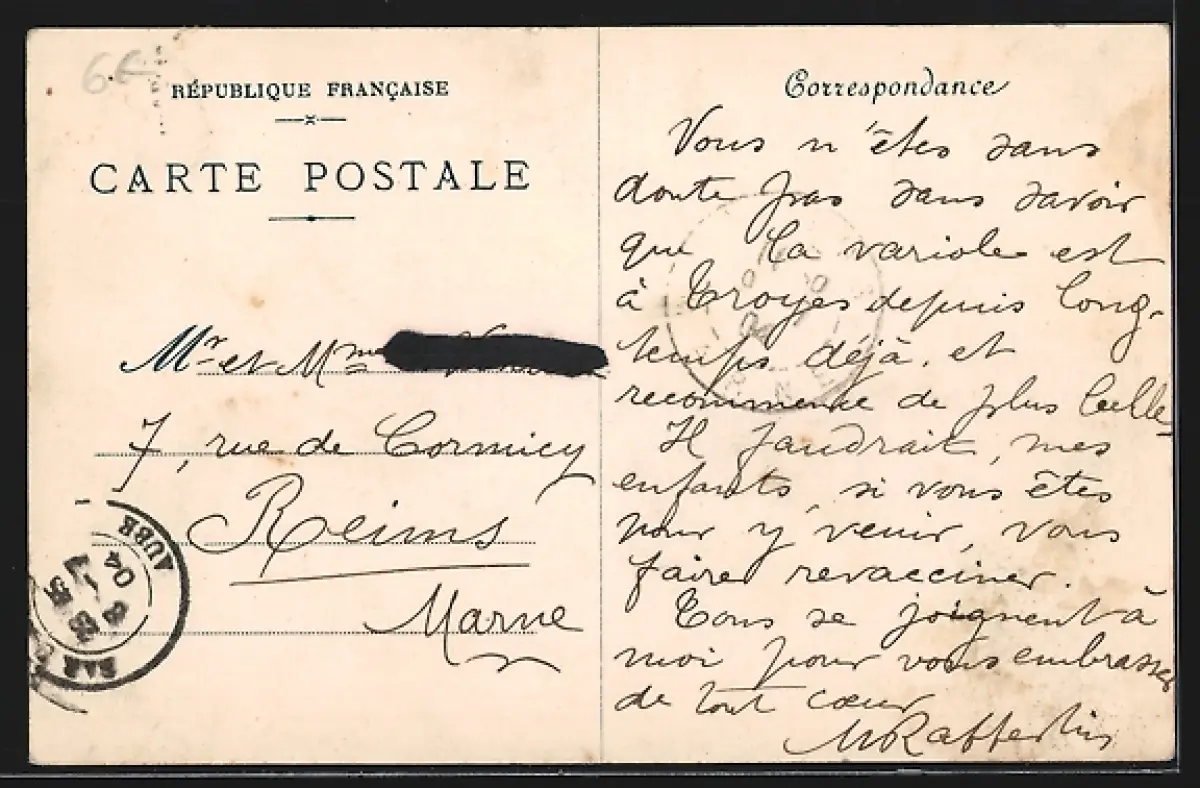 6€
RÉPUBLIQUE FRANÇAISE
CARTE POSTALE
Mr et Mme
7, rue de Cormicy
Reims
Marne
AUBE
04
BAR
Correspondance
Vous n'êtes sans
doute pas sans savoir
que la variole est
à Troyes depuis long-
temps déjà, et
recommence de plus belle.
Il faudrait, mes
enfants, si vous êtes
pour y venir, vous
faire revacciner.
Tous se joignent à
moi pour vous embrasser
de tout cœur